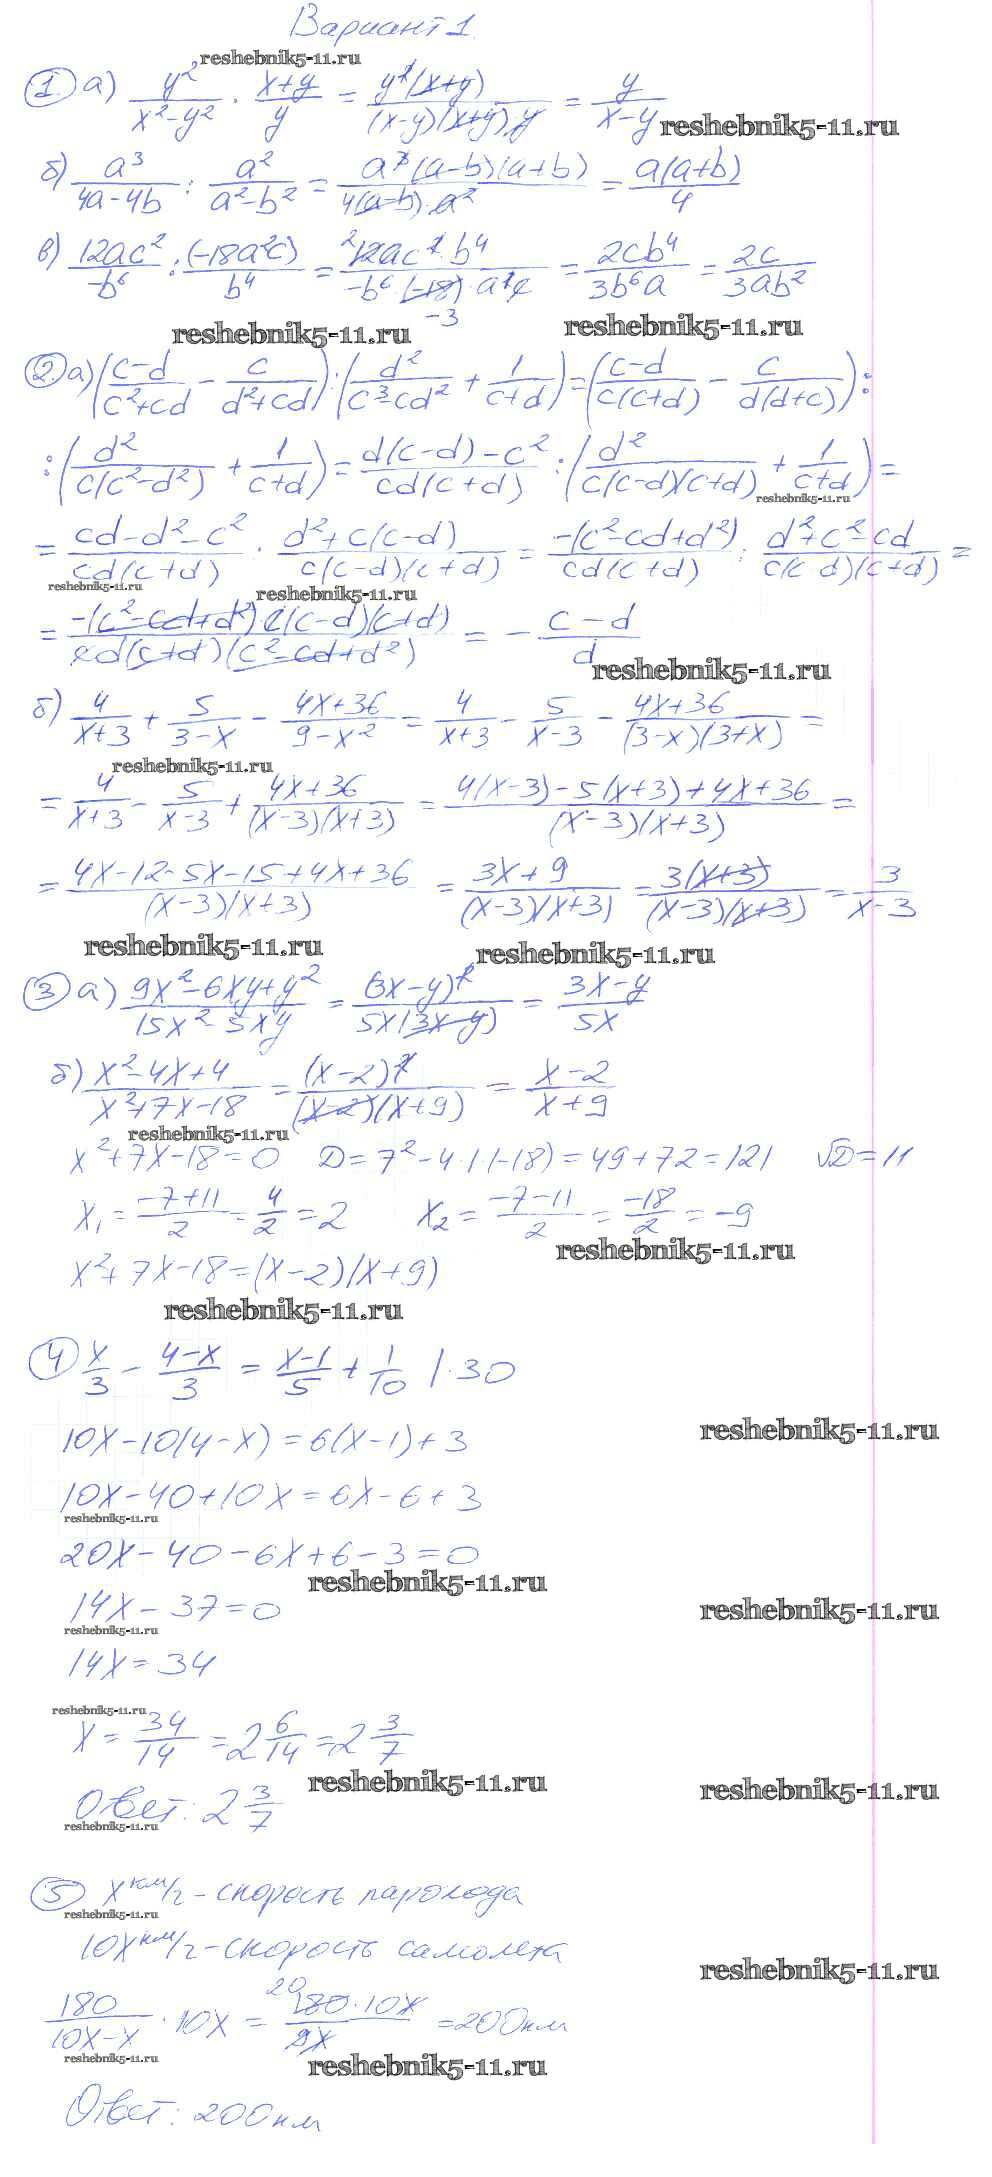 Вариант 1.
reshebnik5-11.ru
① а) y²/(x²-y²) · (x+y)/y = y²(x+y)/((x-y)(x+y)·y) = y/(x-y)
reshebnik5-11.ru
б) a³/(4a-4b) : a²/(a²-b²) = a³(a-b)(a+b)/(4(a-b)·a²) = a(a+b)/4
в) 12ac²/-b⁶ : (-18a²c)/b⁴ = 2 12ac²·b⁴/(-b⁶·(-18)·a²c) = 2cb⁴/3b⁶a = 2c/3ab²
-3
reshebnik5-11.ru reshebnik5-11.ru
② а) ((c-d)/(c²+cd) - c/(d²+cd)) : (d²/(c³-cd²) + 1/(c+d)) = ((c-d)/(c(c+d)) - c/(d(d+c))) :
: (d²/(c(c²-d²)) + 1/(c+d)) = (d(c-d)-c²)/(cd(c+d)) : (d²/(c(c-d)(c+d)) + 1/(c+d)) =
reshebnik5-11.ru
= (cd-d²-c²)/(cd(c+d)) · (d²+c(c-d))/(c(c-d)(c+d)) = -(c²-cd+d²)/(cd(c+d)) : (d²+c²-cd)/(c(c d)(c+d)) =
reshebnik5-11.ru reshebnik5-11.ru
= -(c²-cd+d²)·c(c-d)(c+d)/(cd(c+d)(c²-cd+d²)) = - (c-d)/d
reshebnik5-11.ru
б) 4/(x+3) + 5/(3-x) - (4x+36)/(9-x²) = 4/(x+3) - 5/(x-3) - (4x+36)/((3-x)(3+x)) =
reshebnik5-11.ru
= 4/(x+3) - 5/(x-3) + (4x+36)/((x-3)(x+3)) = (4(x-3)-5(x+3)+4x+36)/((x-3)(x+3)) =
= (4x-12-5x-15+4x+36)/((x-3)(x+3)) = (3x+9)/((x-3)(x+3)) = 3(x+3)/((x-3)(x+3)) = 3/(x-3)
reshebnik5-11.ru reshebnik5-11.ru
③ а) (9x²-6xy+y²)/(15x²-5xy) = (3x-y)²/(5x(3x-y)) = (3x-y)/5x
б) (x²-4x+4)/(x²+7x-18) = (x-2)²/((x-2)(x+9)) = (x-2)/(x+9)
reshebnik5-11.ru
x²+7x-18=0 D=7²-4·1·(-18)=49+72=121 √D=11
x₁ = (-7+11)/2 = 4/2 = 2 x₂ = (-7-11)/2 = -18/2 = -9
reshebnik5-11.ru
x²+7x-18=(x-2)(x+9)
reshebnik5-11.ru
④ x/3 - (4-x)/3 = (x-1)/5 + 1/10 |·30
reshebnik5-11.ru
10x-10(4-x)=6(x-1)+3
10x-40+10x=6x-6+3
reshebnik5-11.ru
20x-40-6x+6-3=0
reshebnik5-11.ru
14x-37=0
reshebnik5-11.ru
reshebnik5-11.ru
14x=34
reshebnik5-11.ru
x = 34/14 = 2 6/14 = 2 3/7
reshebnik5-11.ru reshebnik5-11.ru
Ответ: 2 3/7
reshebnik5-11.ru
⑤ x км/г - скорость парохода
reshebnik5-11.ru
10x км/г - скорость самолета
reshebnik5-11.ru
180/(10x-x) · 10x = 20 180·10x/9x = 200км
reshebnik5-11.ru reshebnik5-11.ru
Ответ: 200км